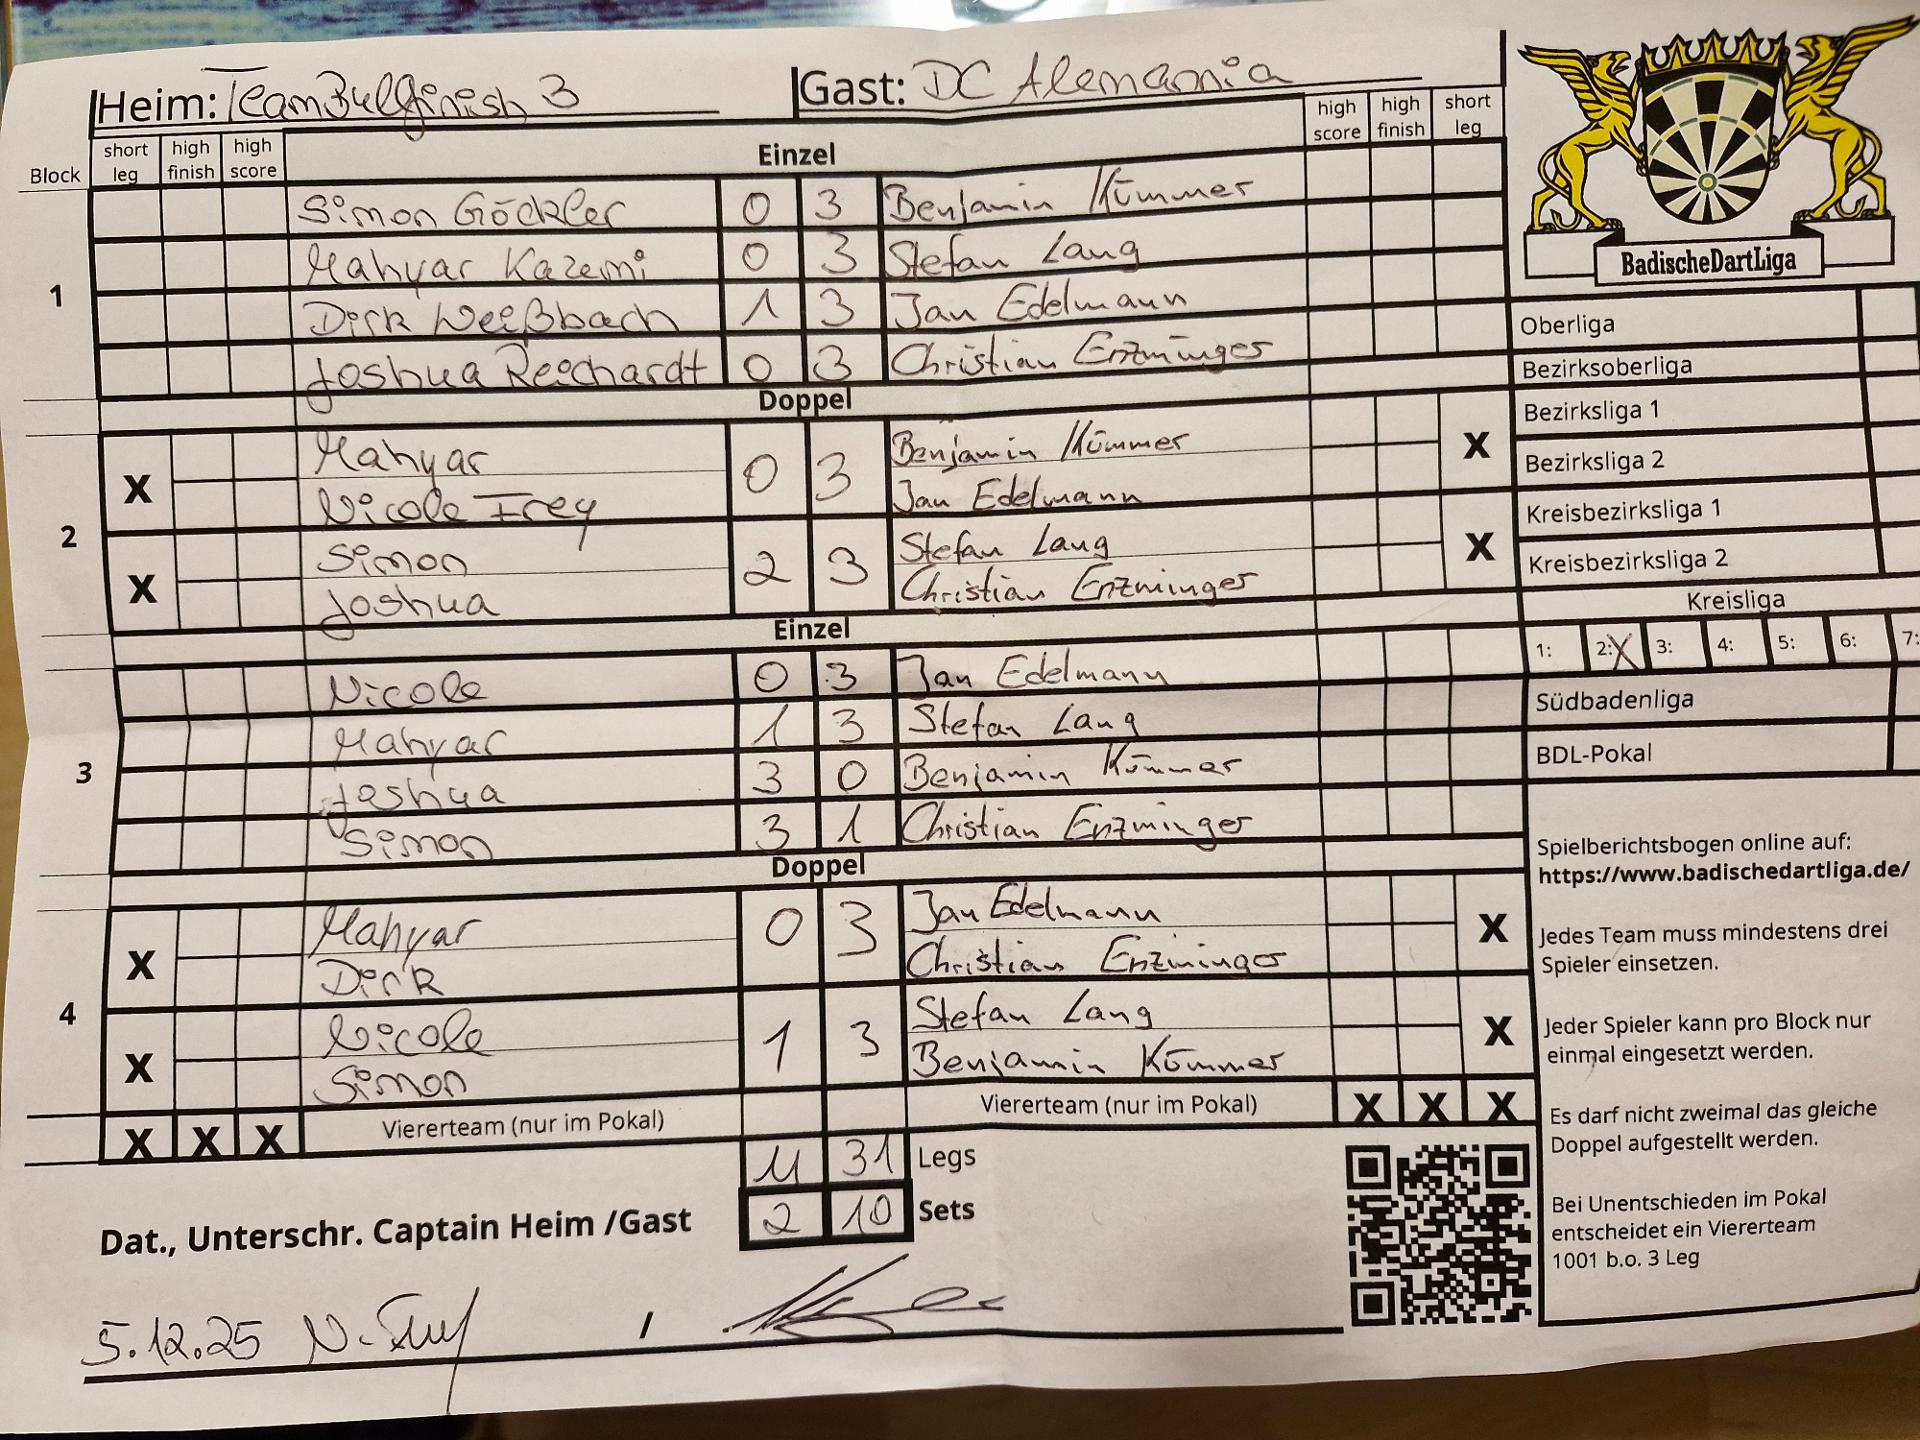 Heim: TeamBullfinish 3 Gast: DC Alemannia
Block short leg high finish high score Einzel high score high finish short leg
1
Simon Göckler 0 3 Benjamin Kümmer
Mahyar Kazemi 0 3 Stefan Lang
Dirk Weißbach 1 3 Jan Edelmann
Joshua Reichardt 0 3 Christian Enzminger
Doppel
2
X Mahyar 0 3 Benjamin Kümmer X
Nicole Frey Jan Edelmann
X Simon 2 3 Stefan Lang X
Joshua Christian Enzminger
Einzel
3
Nicole 0 3 Jan Edelmann
Mahyar 1 3 Stefan Lang
Joshua 3 0 Benjamin Kümmer
Simon 3 1 Christian Enzminger
Doppel
4
X Mahyar 0 3 Jan Edelmann X
Dirk Christian Enzminger
X Nicole 1 3 Stefan Lang X
Simon Benjamin Kümmer
X X X Viererteam (nur im Pokal) Viererteam (nur im Pokal) X X X
11 31 Legs
2 10 Sets
Dat., Unterschr. Captain Heim /Gast
5.12.25 N. Frey /
BadischeDartLiga
Oberliga
Bezirksoberliga
Bezirksliga 1
Bezirksliga 2
Kreisbezirksliga 1
Kreisbezirksliga 2
Kreisliga
1: 2: X 3: 4: 5: 6: 7:
Südbadenliga
BDL-Pokal
Spielberichtsbogen online auf:
https://www.badischedartliga.de/
Jedes Team muss mindestens drei
Spieler einsetzen.
Jeder Spieler kann pro Block nur
einmal eingesetzt werden.
Es darf nicht zweimal das gleiche
Doppel aufgestellt werden.
Bei Unentschieden im Pokal
entscheidet ein Viererteam
1001 b.o. 3 Leg